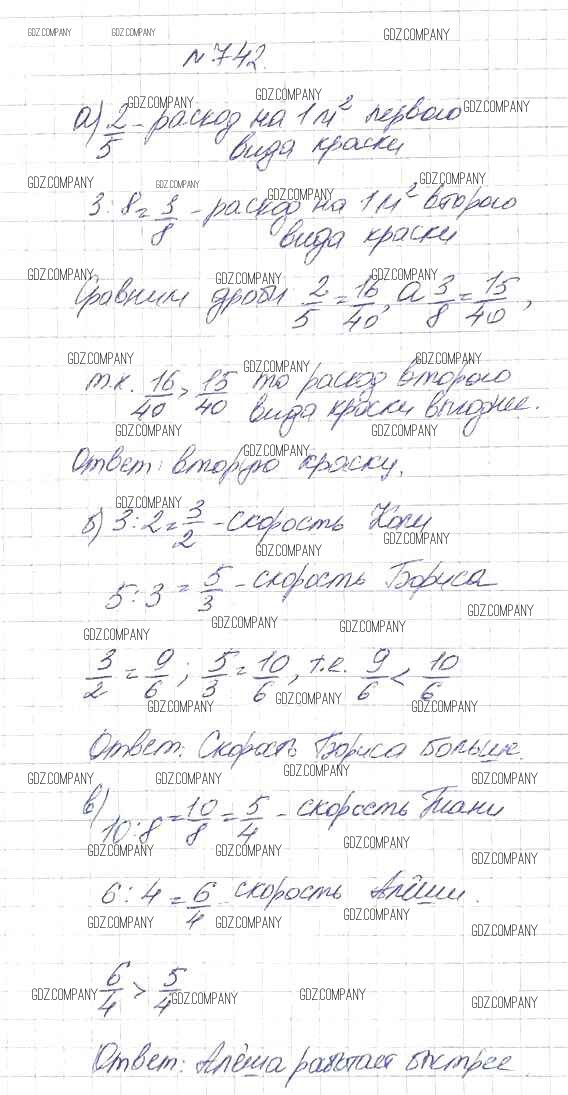 GDZ.COMPANY GDZ.COMPANY GDZ.COMPANY
№742.
GDZ.COMPANY GDZ.COMPANY GDZ.COMPANY
а) 2/5 - расход на 1 м² первого
вида краски
GDZ.COMPANY GDZ.COMPANY GDZ.COMPANY GDZ.COMPANY
3:8=3/8 - расход на 1 м² второго
вида краски
GDZ.COMPANY GDZ.COMPANY GDZ.COMPANY
Сравним дроби 2/5=16/40, а 3/8=15/40,
GDZ.COMPANY GDZ.COMPANY GDZ.COMPANY
т.к. 16/40>15/40 то расход второго
вида краски выгоднее.
GDZ.COMPANY GDZ.COMPANY GDZ.COMPANY
Ответ: вторую краску.
GDZ.COMPANY
б) 3:2=3/2 - скорость Коли
GDZ.COMPANY GDZ.COMPANY
5:3=5/3 - скорость Бориса
GDZ.COMPANY GDZ.COMPANY GDZ.COMPANY GDZ.COMPANY
3/2=9/6; 5/3=10/6, т.е. 9/6<10/6
GDZ.COMPANY GDZ.COMPANY GDZ.COMPANY
Ответ: Скорость Бориса больше.
GDZ.COMPANY GDZ.COMPANY GDZ.COMPANY GDZ.COMPANY
в) 10:8=10/8=5/4 - скорость Тани
GDZ.COMPANY GDZ.COMPANY GDZ.COMPANY GDZ.COMPANY
6:4=6/4 скорость Алёши.
GDZ.COMPANY GDZ.COMPANY GDZ.COMPANY GDZ.COMPANY
6/4>5/4
GDZ.COMPANY GDZ.COMPANY GDZ.COMPANY GDZ.COMPANY
Ответ: Алёша работает быстрее